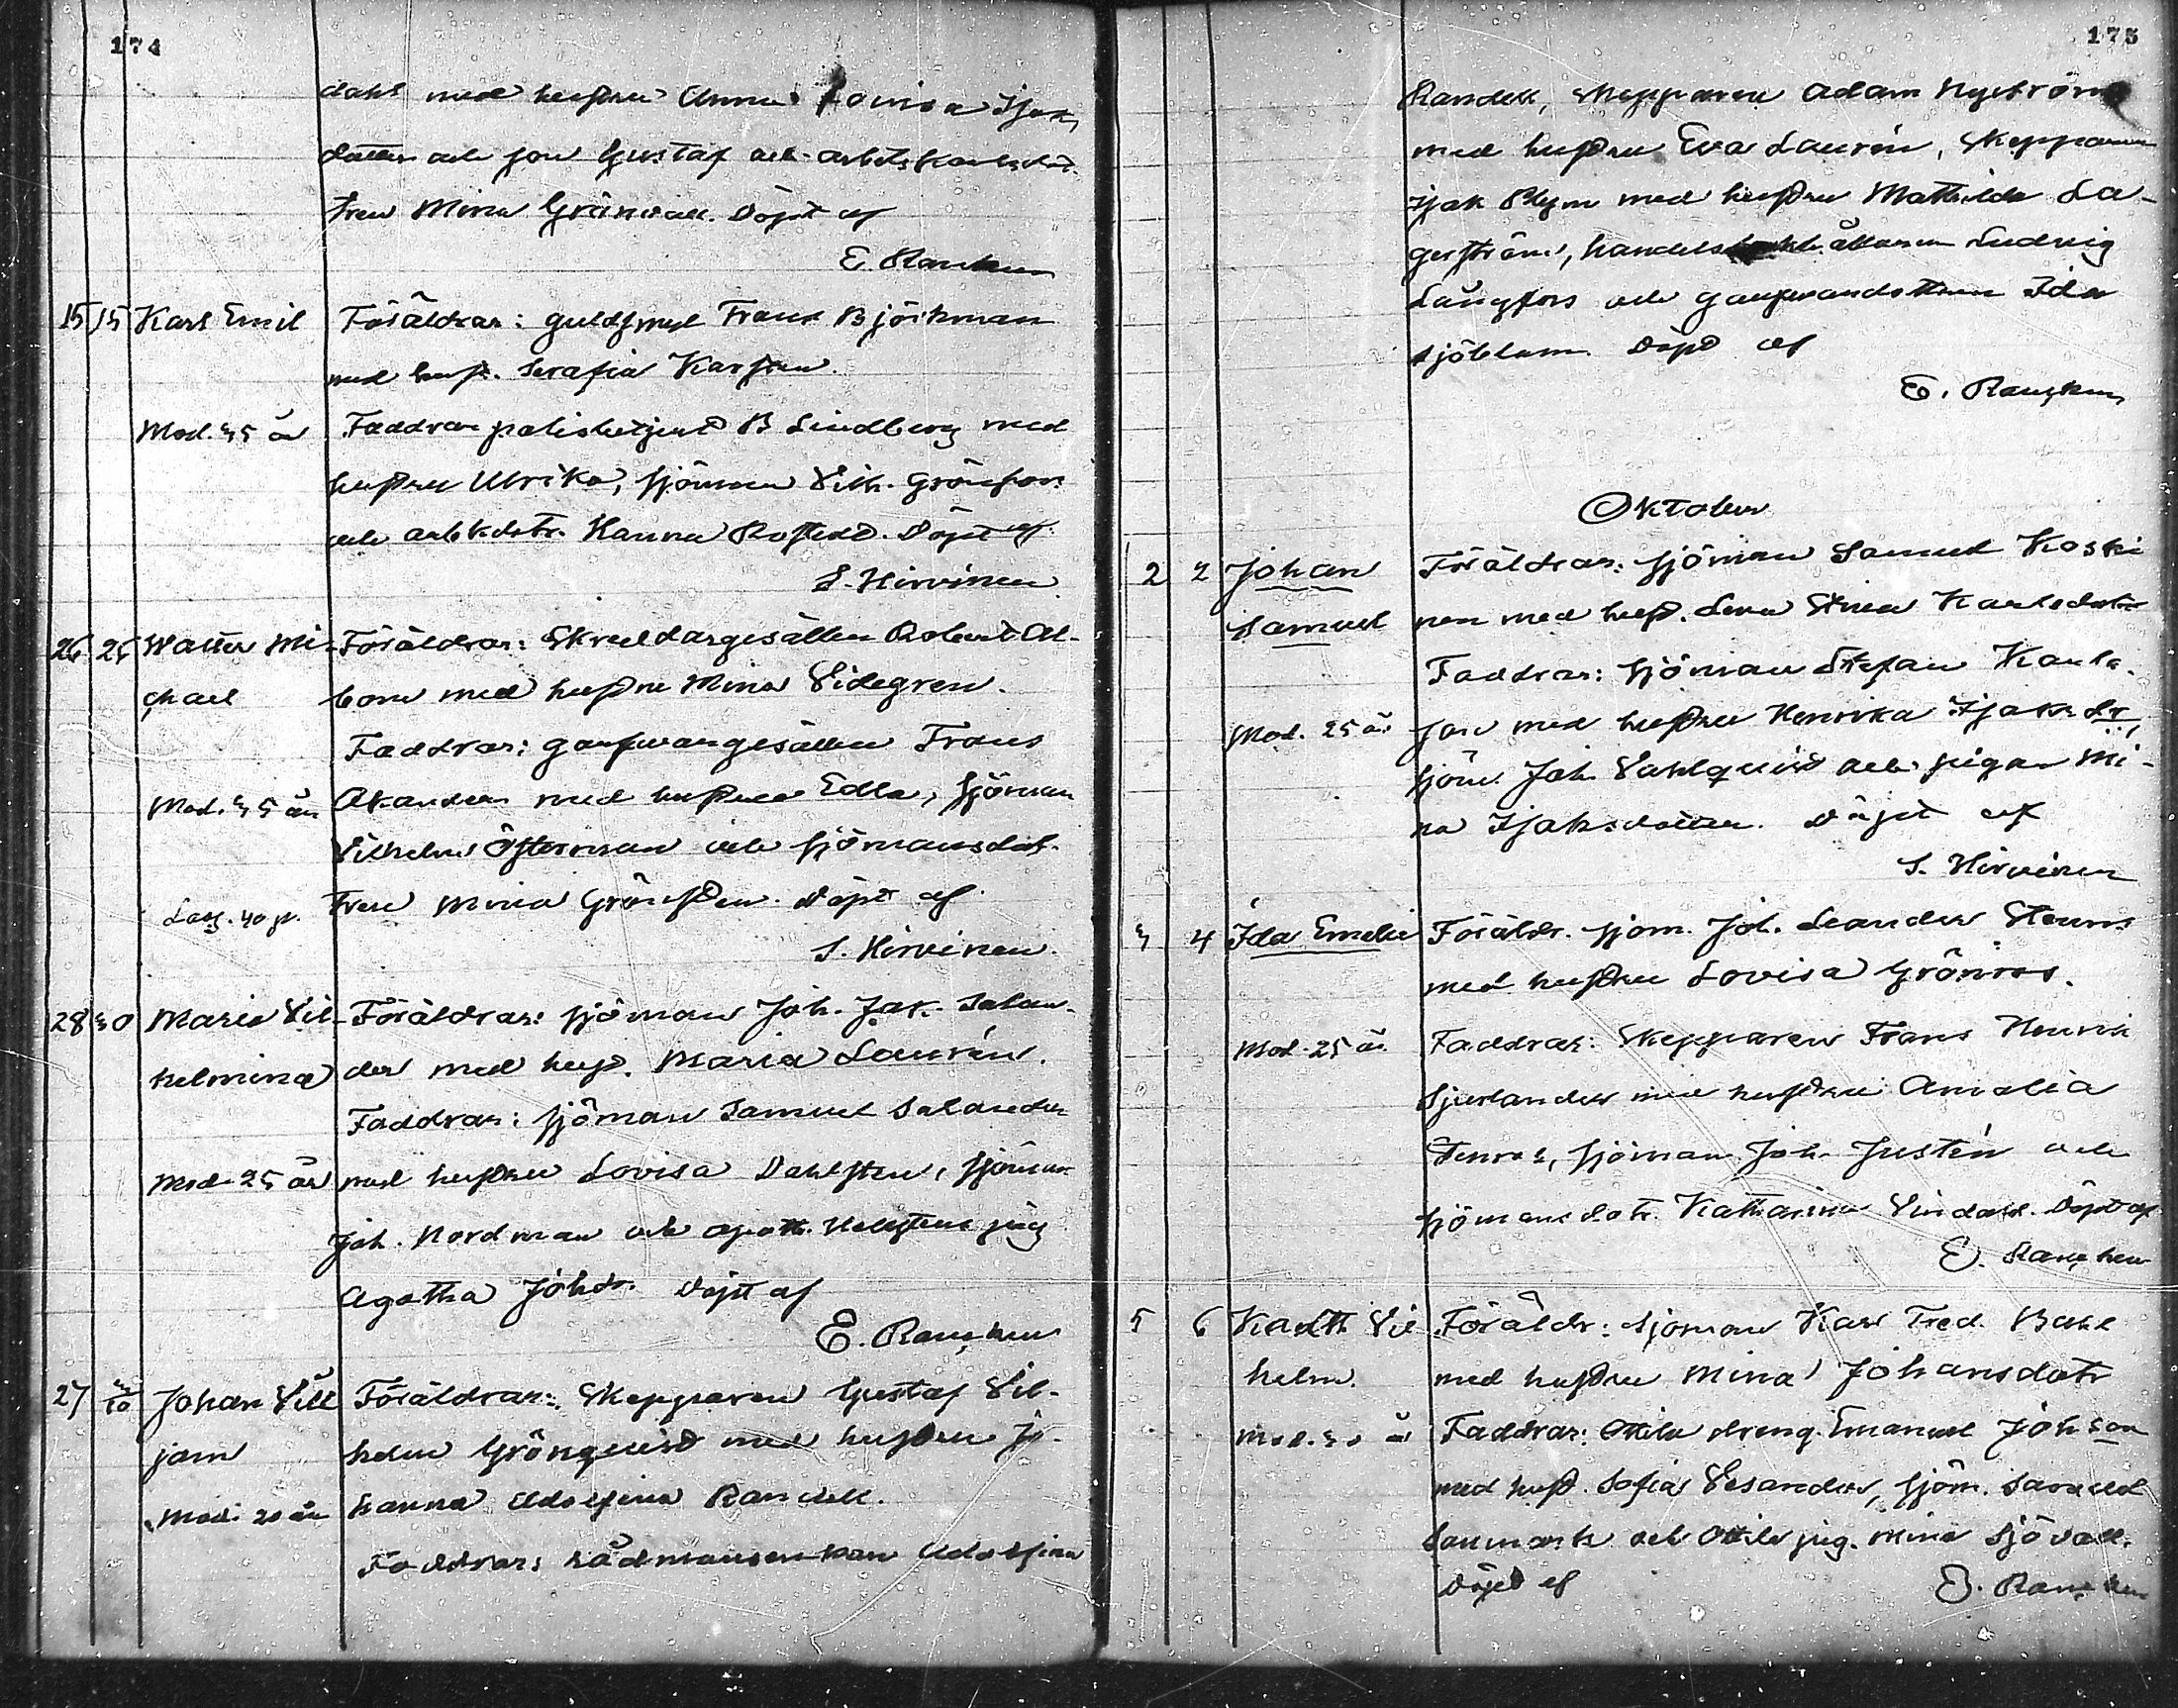 174
dahl med hustru Anna Lovisa Isaks
dotter och son Gustaf och arbetskarlsdot
tren Mina Grönvall. Döpt af
E. Rancken
15 15 Karl Emil Föräldrar: guldsmed Frans Björkman
med hust. Serafia Karsten.
Mod. 35 år Faddrar polisbetjent B Lindberg med
hustru Ulrika, sjöman Vilh. Grönfors
och arbkdotr. Hanna Rostedt. Döpt af
S. Hirvinen
26 26 Walter Mi- Föräldrar: Skreddargesällen Robert Al-
chael bom med hustru Mina Videgren.
Faddrar: garfvaregesällen Frans
Mod. 35 år Akander med hustru Edla, sjöman
Vilhelm Österman och sjömansdot-
Lag. 40 p. tren Mina Grönsten. Döpt af
S. Hirvinen.
28 30 Maria Vil- Föräldrar: sjöman Joh. Jak. Salan-
helmina der med hust. Maria Laurén.
Faddrar: sjöman Samuel Salander
Mod. 25 år med hustru Lovisa Dahlsten, sjöman
Joh. Nordman och apoth. Hellstens pig
Agatha Johdr. Döpt af
E. Rancken
27 3/10 Johan Vill Föräldrar: Skepparen Gustaf Vil-
jam helm Grönqvist med hustru Jo-
Mod. 20 år hanna Adolfina Randell.
Faddrar: rådmansenkan Adolfina
175
Randell, Skepparen Adam Nyström
med hustru Eva Laurén, Skepparen
Isak Rhym med hustru Mathilda La-
gerström, handels ållaren Ludvig
Långfors och garfvaredottren Ida
Sjöblom. Döpt af
E. Rancken
Oktober
2 2 Johan Föräldrar: sjöman Samuel Koski
Samuel nen med hust. Lena Stina Karlsdotr
Faddrar: sjöman Stefan Karls-
Mod. 25 år son med hustru Henrika Isaksdr,
sjöm. Joh. Vahlqvist och pigan Mi-
na Isaksdotter. Döpt af
S. Hirvinen
3 4 Ida Emelie Föräldr. sjöm. Joh. Leander Stenros
med hustru Lovisa Grönros.
Mod. 25 år Faddrar: Skepparen Frans Henrik
Sjulander med hustru Amalia
Stenros, sjöman Joh. Justén och
sjömansdotr. Katharina Lindahl. Döpt af
E. Rancken
5 6 Karl Vil Föräldr: sjöman Karl Fred. Back
helm. med hustru Mina Johansdotr
Mod. 30 år Faddrar: Ottila dreng. Emanuel Johson
med hust. Sofia Vesander, sjöm. Samuel
Sanmark och Ottila pig. Mina Sjövall.
Döpt af E. Rancken